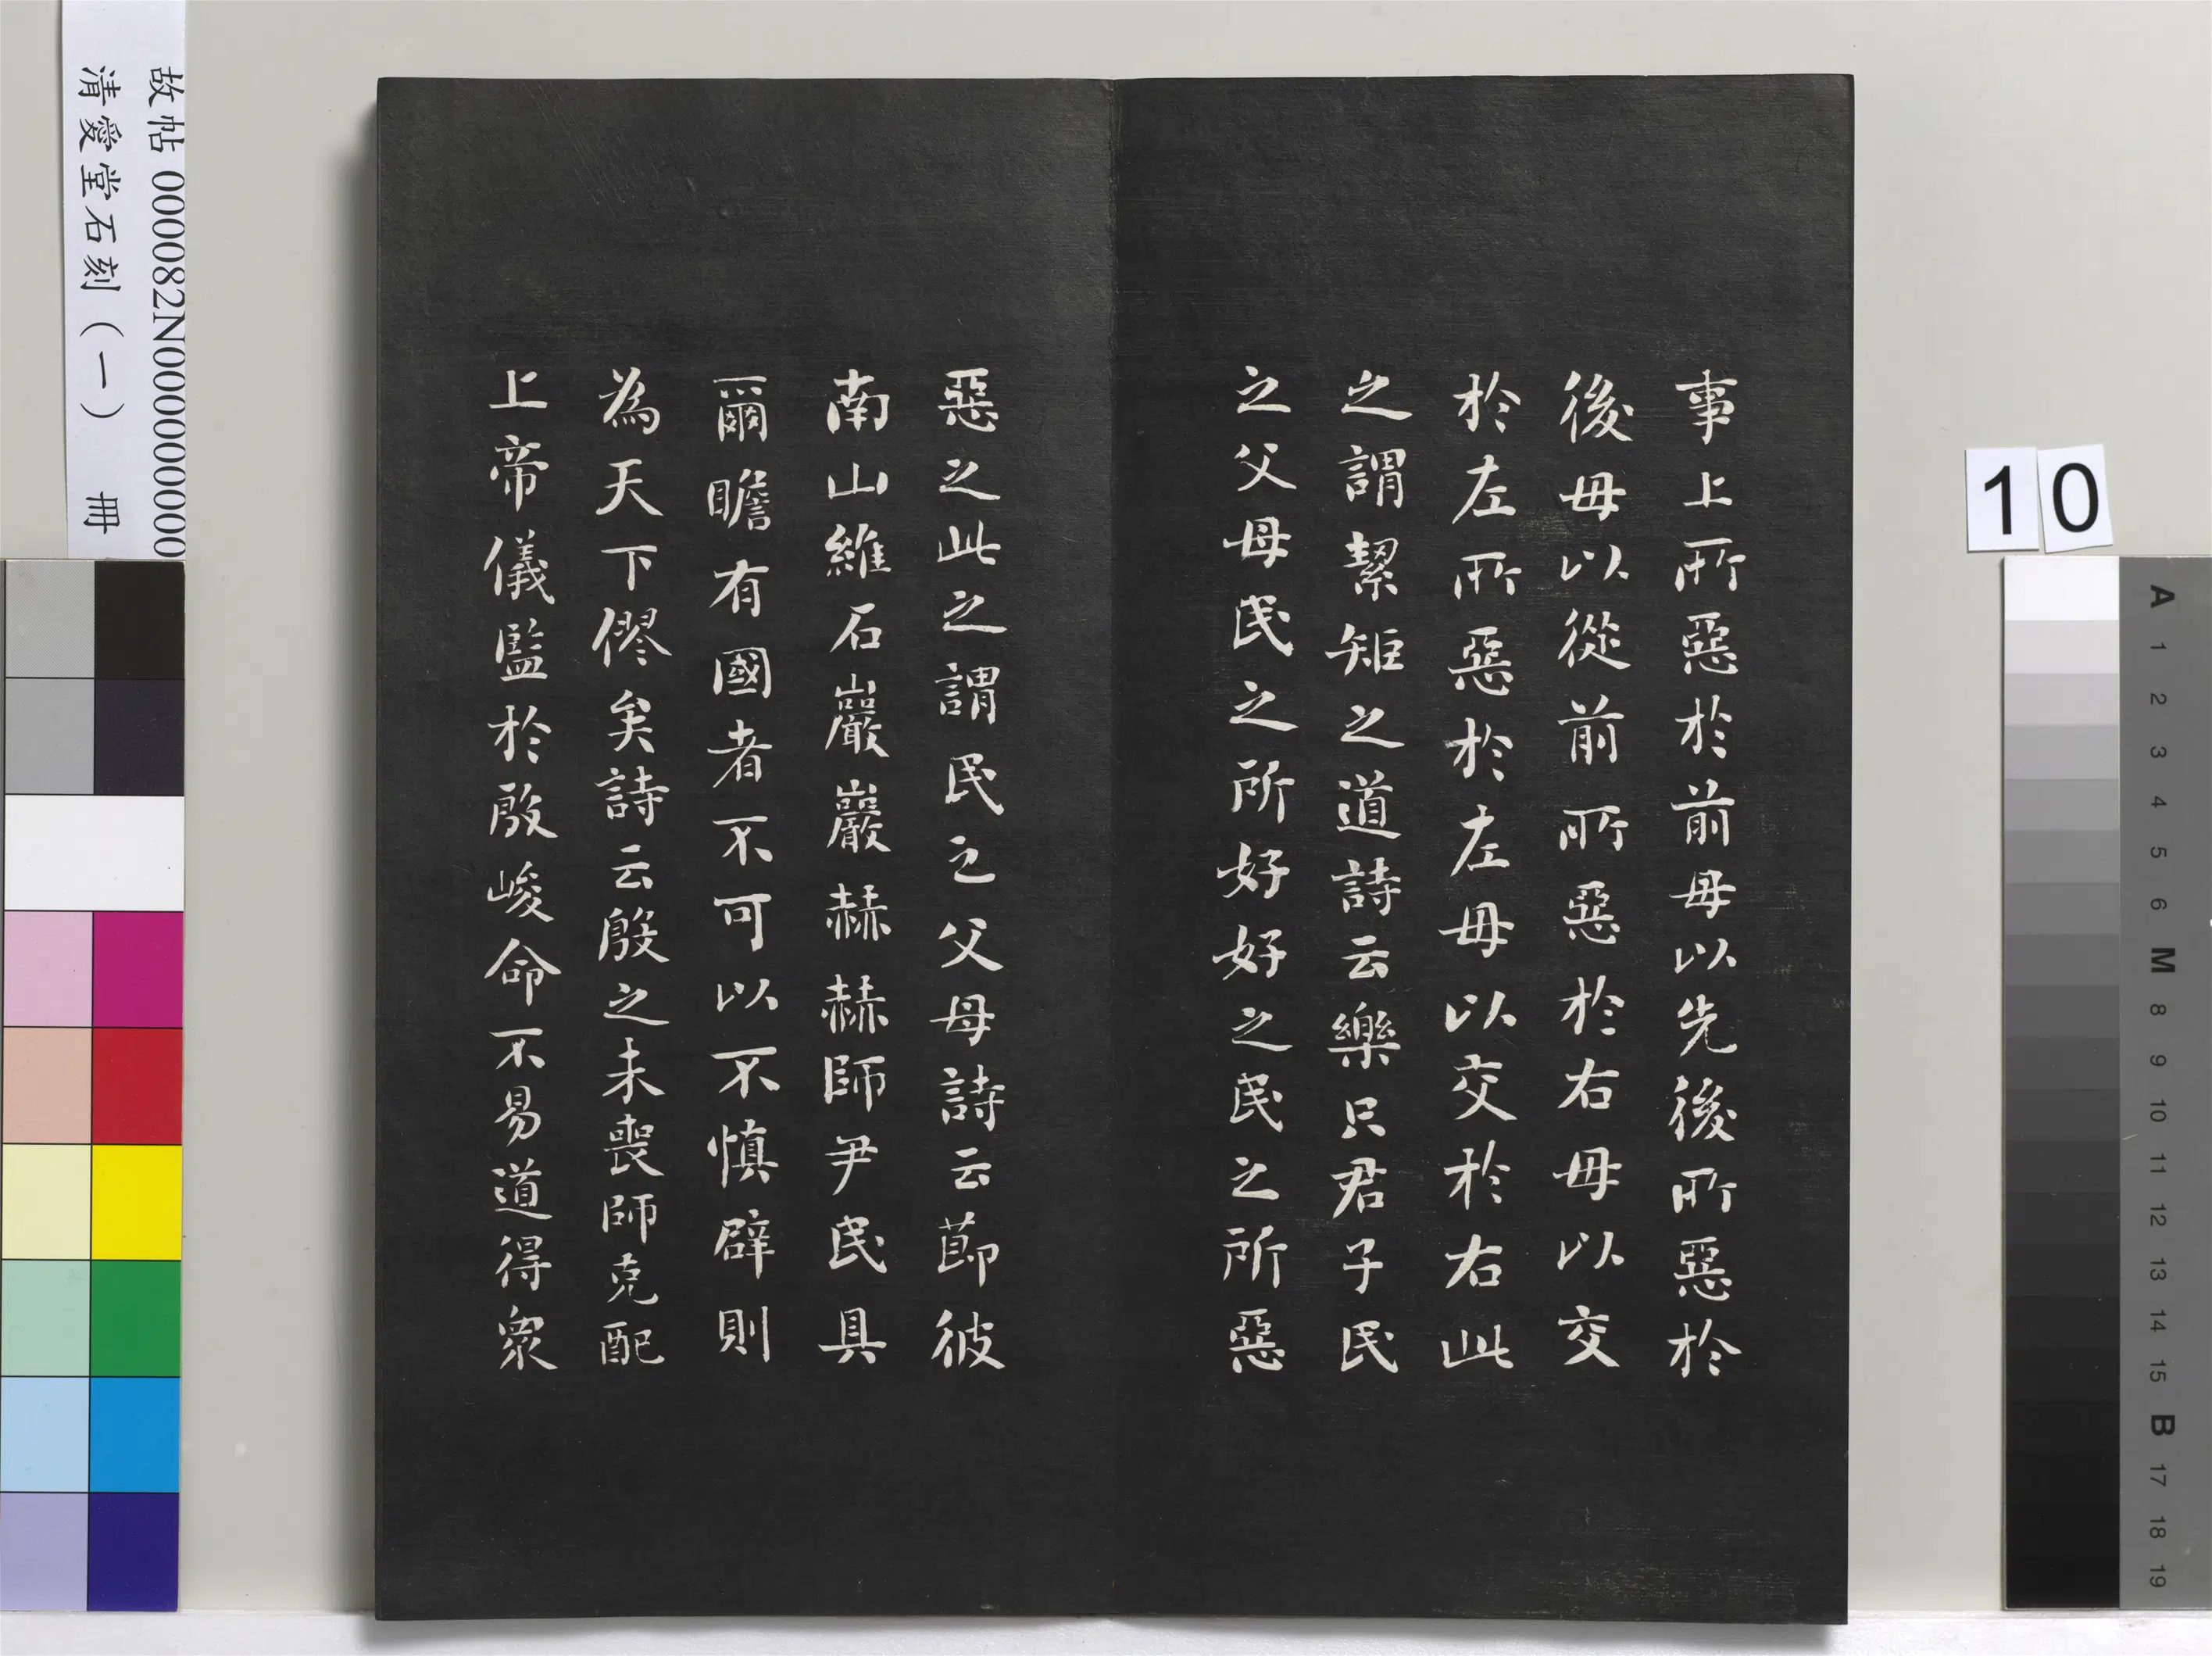 事上所惡於前毋以先後所惡於
後毋以從前所惡於右毋以交
於左所惡於左毋以交於右此
之謂絜矩之道詩云樂只君子民
之父母民之所好好之民之所惡
惡之此之謂民之父母詩云節彼
南山維石巖巖赫赫師尹民具
爾瞻有國者不可以不慎辟則
為天下僇矣詩云殷之未喪師克配
上帝儀監於殷峻命不易道得眾
故帖 000082N000000000
清愛堂石刻（一） 冊
10
A 1 2 3 4 5 6 M 8 9 10 11 12 13 14 15 B 17 18 19